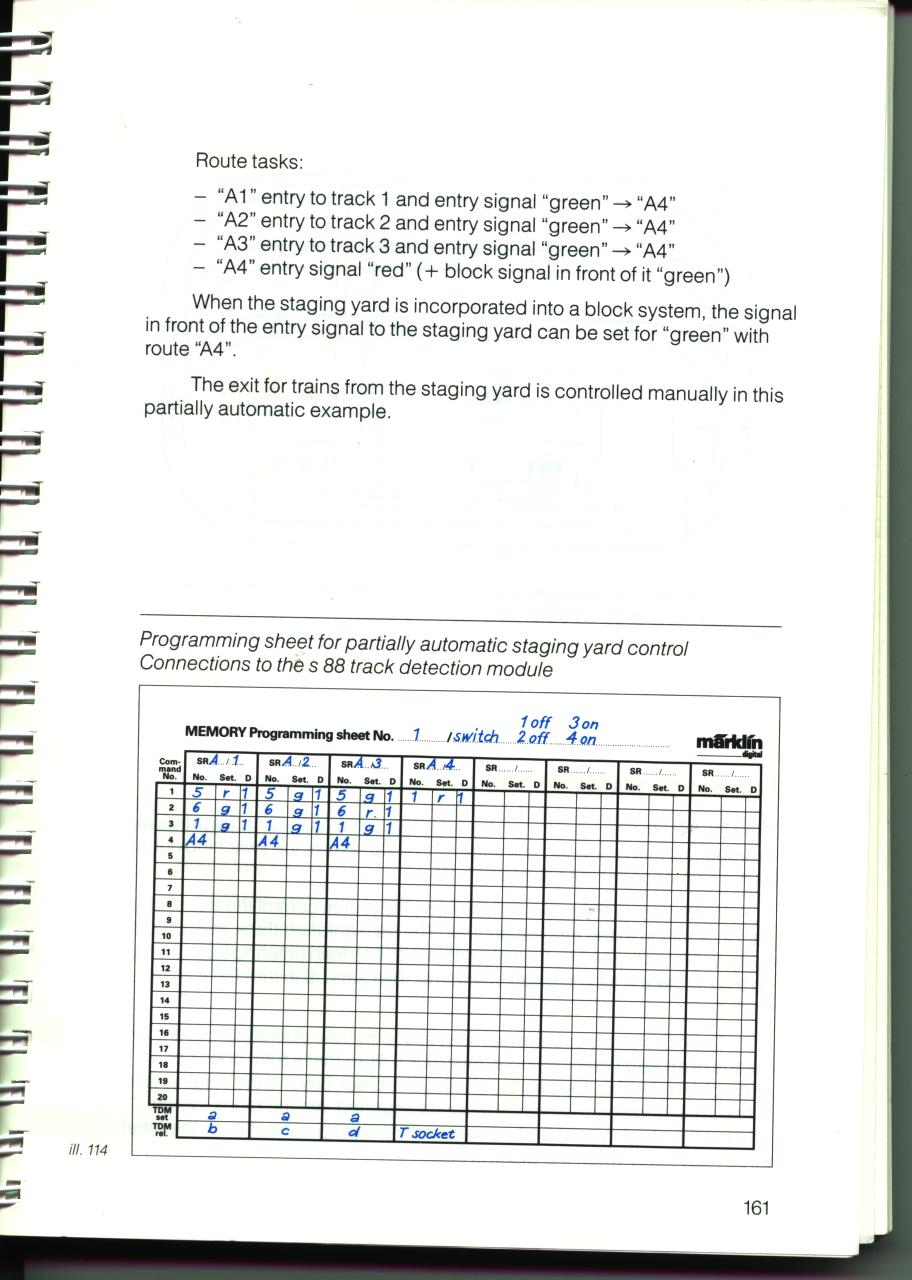 Route tasks:
– “A1” entry to track 1 and entry signal “green” → “A4”
– “A2” entry to track 2 and entry signal “green” → “A4”
– “A3” entry to track 3 and entry signal “green” → “A4”
– “A4” entry signal “red” (+ block signal in front of it “green”)
When the staging yard is incorporated into a block system, the signal
in front of the entry signal to the staging yard can be set for “green” with
route “A4”.
The exit for trains from the staging yard is controlled manually in this
partially automatic example.
Programming sheet for partially automatic staging yard control
Connections to the s 88 track detection module
1 off 3 on
MEMORY Programming sheet No. 1 / switch 2 off 4 on
märklin
digital
Com-mand No. SR A / 1 SR A / 2 SR A / 3 SR A / 4 SR / SR / SR / SR /
No. Set. D No. Set. D No. Set. D No. Set. D No. Set. D No. Set. D No. Set. D No. Set. D
1 5 r 1 5 g 1 5 g 1 1 r 1
2 6 g 1 6 g 1 6 r. 1
3 1 g 1 1 g 1 1 g 1
4 A4 A4 A4
5
6
7
8
9
10
11
12
13
14
15
16
17
18
19
20
TDM set a a a
TDM rel. b c d T socket
ill. 114
161